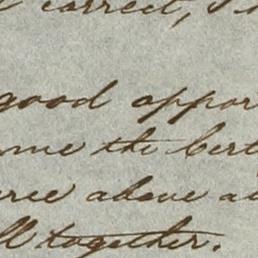 correct, I
good oppor
me the best
above a
ll together.